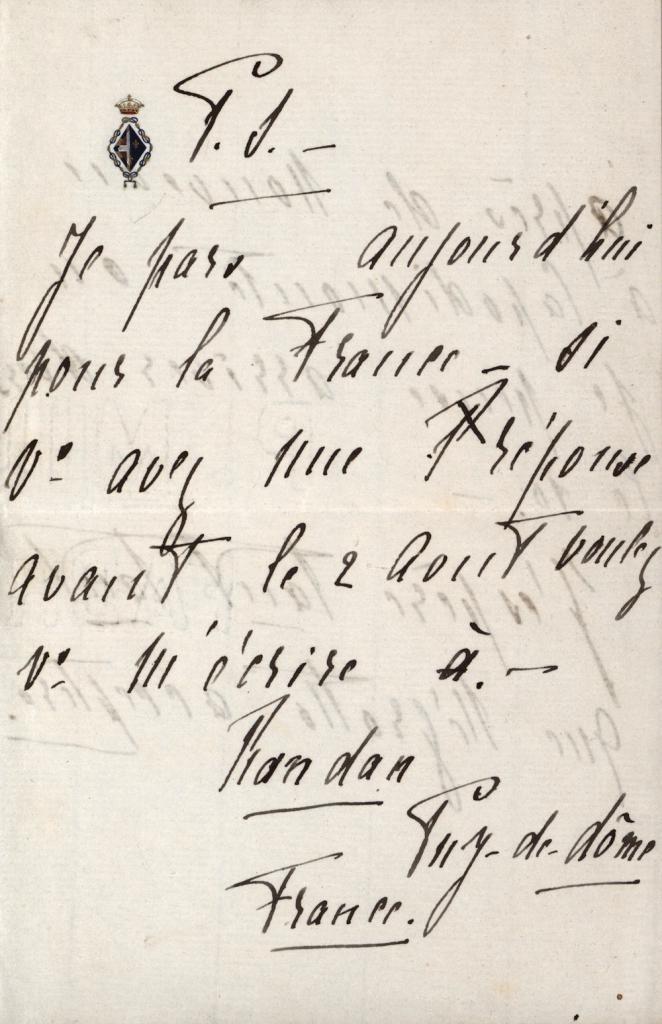 P.S. —
Je pars aujourd'hui
pour la France — si
vs avez une Réponse
avant le 2 Aout voulez
vs m'écrire à. —
Randan
Puy-de-dôme
France.